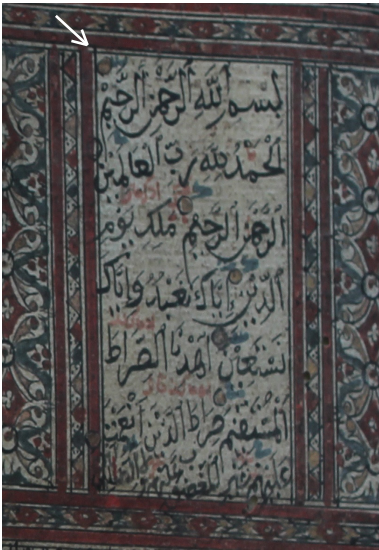 بسم الله الرحمن الرحيم
الحمد لله رب العالمين
الرحمن الرحيم ملك يوم
الدين إياك نعبد وإياك
نستعين اهدنا الصراط
المستقيم صراط الذين أنعمت
عليهم غير المغضوب عليهم